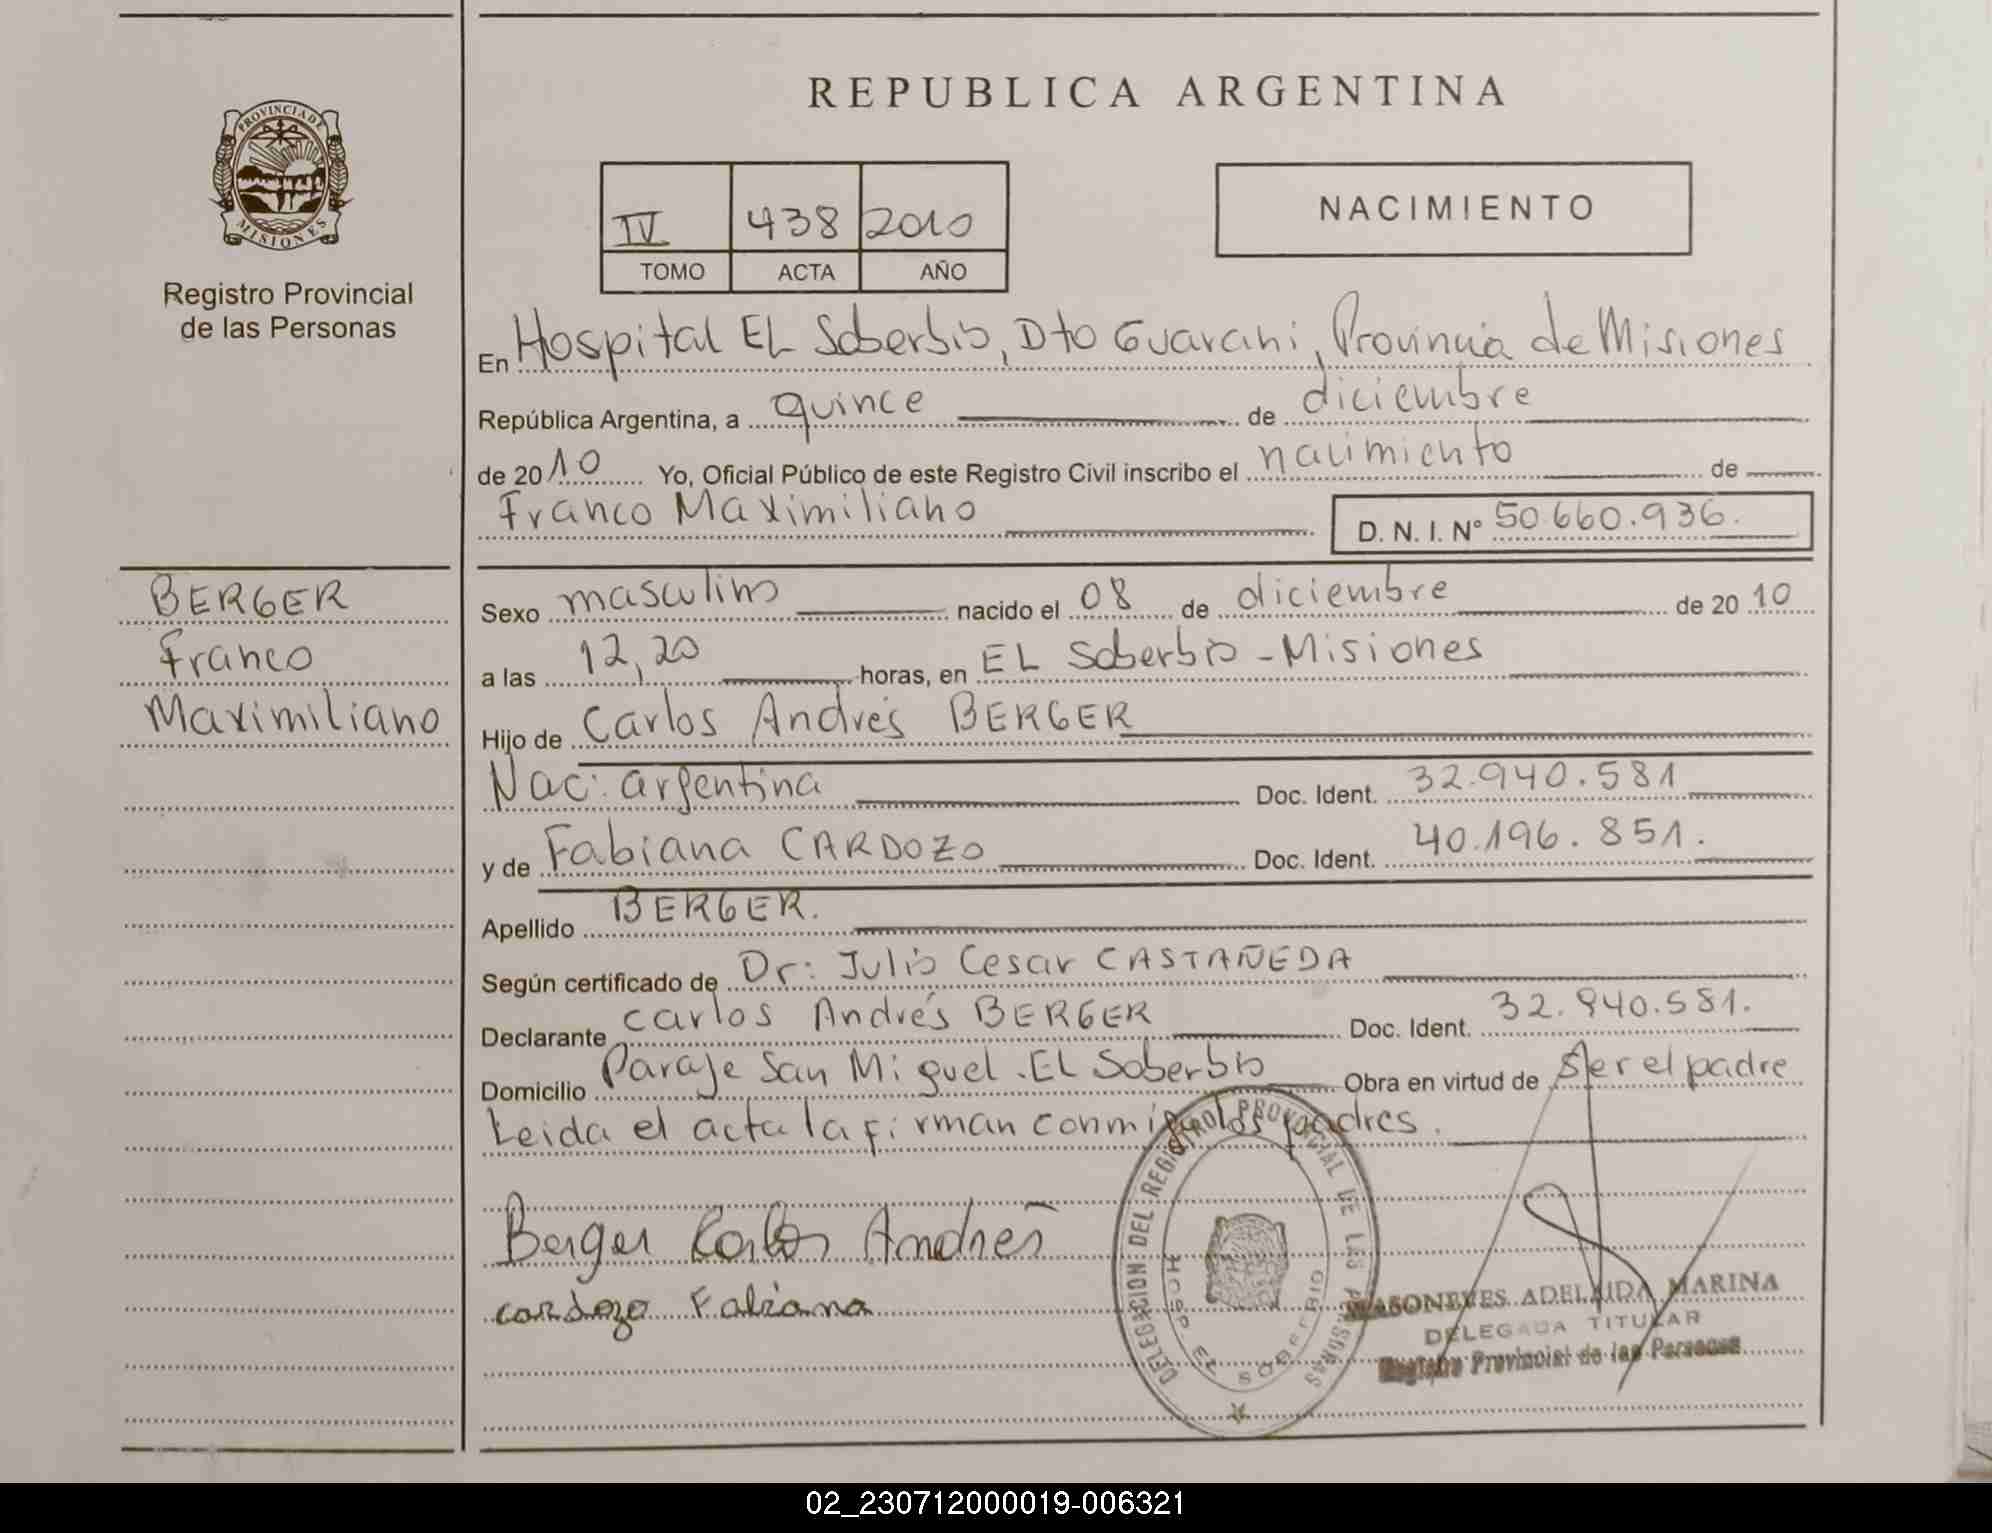 PROVINCIA DE
MISIONES
Registro Provincial
de las Personas
BERGER
Franco
Maximiliano
REPUBLICA ARGENTINA
IV 438 2010
TOMO ACTA AÑO
NACIMIENTO
En Hospital EL Soberbio, Dto Guarani, Provincia de Misiones
República Argentina, a quince de diciembre
de 2010 Yo, Oficial Público de este Registro Civil inscribo el nacimiento de
Franco Maximiliano D. N. I. N° 50.660.936.
Sexo masculino nacido el 08 de diciembre de 2010
a las 12,20 horas, en EL Soberbio - Misiones
Hijo de Carlos Andrés BERGER
Nac: argentina Doc. Ident. 32.940.581
y de Fabiana CARDOZO Doc. Ident. 40.196.851.
Apellido BERGER.
Según certificado de Dr: Julio Cesar CASTAÑEDA
Declarante Carlos Andrés BERGER Doc. Ident. 32.940.581.
Domicilio Paraje San Miguel. EL Soberbio Obra en virtud de ser el padre
Leida el acta la firman conmigo los padres.
Berger Carlos Andrés
cardozo Fabiana
DELEGACION DEL REGISTRO PROVINCIAL DE LAS PERSONAS
HOSP. EL SOBERBIO
ADELAIDA MARINA
DELEGADA TITULAR
Registro Provincial de las Personas
02_230712000019-006321